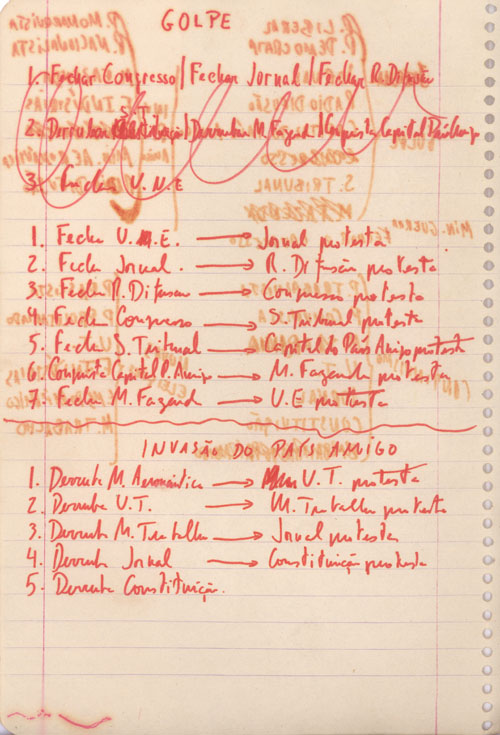 GOLPE
1. Fechar Congresso / Fechar Jornal / Fechar R. Difusão
2. Derrubar S.T. / Derrubar M. Fazend / Conquista Capital País Amigo
3. Fecha U.N.E
1. Fecha U.N.E. → Jornal protesta
2. Fecha Jornal. → R. Difusão protesta
3. Fecha R. Difusão → Congresso protesta
4. Fecha Congresso → S. Tribunal protesta
5. Fecha S. Tribunal → Capital do País Amigo protesta
6. Conquista Capital P. Amigo → M. Fazenda protesta
7. Fecha M. Fazend → U.E protesta
INVASÃO DO PAÍS AMIGO
1. Derruba M. Aeronáutica → U.T. protesta
2. Derruba U.T. → M. Trabalho protesta
3. Derruba M. Trabalho → Jornal protesta
4. Derruba Jornal → Constituição protesta
5. Derruba Constituição.